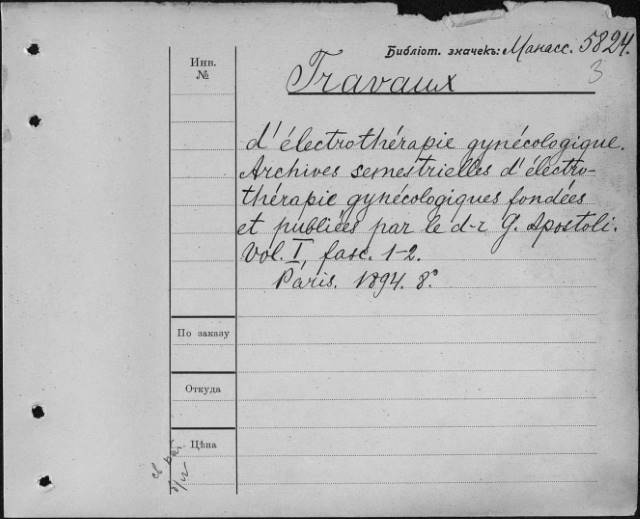 Библіот. значекъ: Манасс. 5824.
3
Инв.
№
Travaux
d'électrothérapie gynécologique.
Archives semestrielles d'électro-
thérapie gynécologiques fondées
et publiées par le d-r G. Apostoli.
Vol. I, fasc. 1-2.
Paris. 1894. 8°
По заказу
Откуда
Цѣна